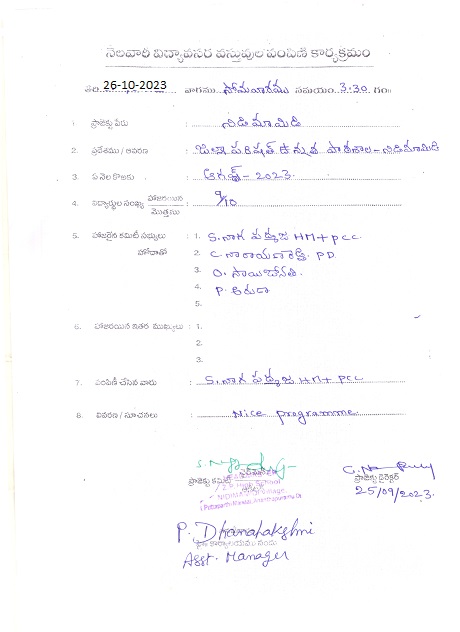 నెలవారీ విద్యావసర వస్తువుల పంపిణీ కార్యక్రమం
తేది 26-10-2023 వారము సోమవారము సమయం 3.30 గం॥
1. ప్రాజెక్టు పేరు : నిడిమామిడి
2. ప్రదేశము / ఆవరణ : జిల్లా పరిషత్ ఉన్నత పాఠశాల - నిడిమామిడి
3. ఏ నెల కొఱకు : ఆగష్టు - 2023.
4. విద్యార్థుల సంఖ్య హాజరయిన / మొత్తము : 9/10
5. హాజరైన కమిటీ సభ్యులు : 1. S. నాగ పద్మజ HM + PCC.
హోదాతో 2. C. నారాయణరెడ్డి. PD.
3. O. సాయిజ్యోతి.
4. P. అరుణ
5.
6. హాజరయిన ఇతర ముఖ్యులు : 1.
2.
3.
7. పంపిణీ చేసిన వారు : S. నాగ పద్మజ HM + PCC
8. వివరణ / సూచనలు : Nice programme
ప్రాజెక్టు కమిటీ ప్రాజెక్టు డైరెక్టర్
25/09/2023.
Z.P. High School
P. Dhanalakshmi
Asst. Manager